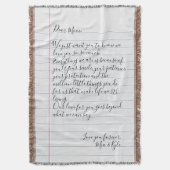 Dear Mom
We just want you to know we
love you so so much.
Everything we are is because of
you. Your smile, your patience
your protection and the
million little things you do
for us that make life worth
living.
Our love for you goes beyond
what we can say.
Love you forever,
& Kyle